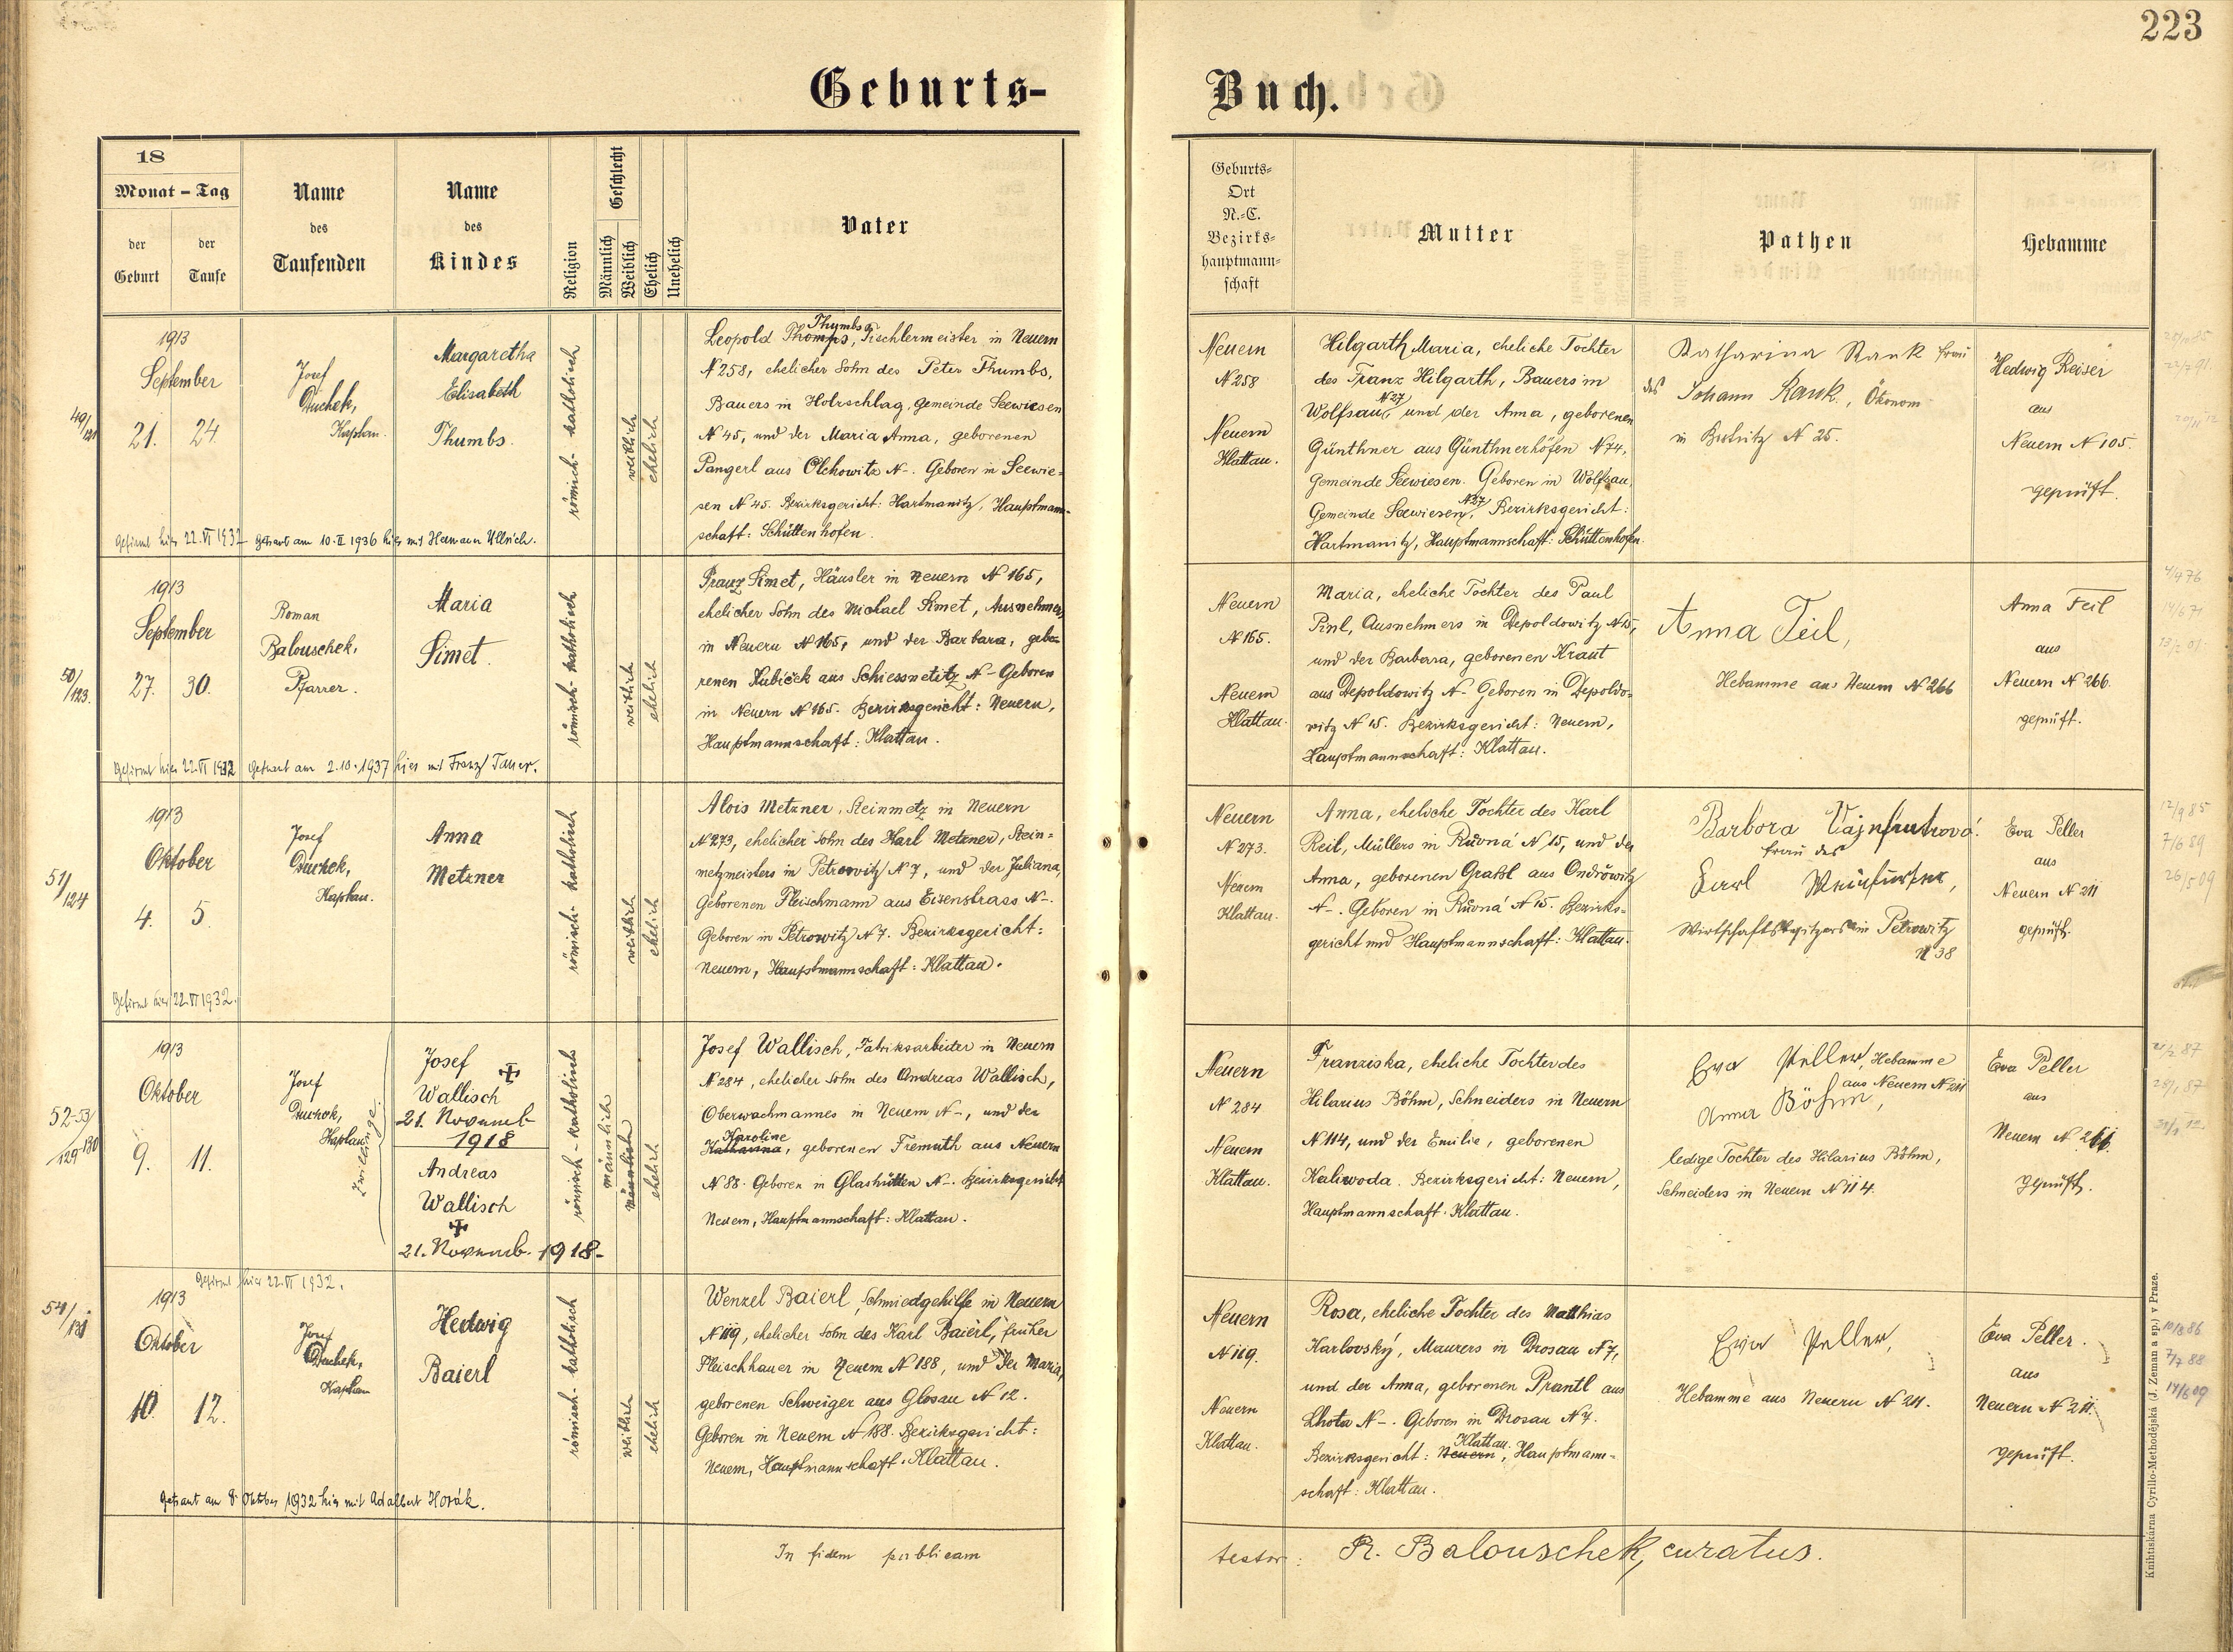 223
Geburts-
Buch.
18
Monat - Tag
der Geburt
der Taufe
Name des Taufenden
Name des Kindes
Religion
Geschlecht
Männlich
Weiblich
Ehelich
Unehelich
Vater
Geburts-
Ort
N.-C.
Bezirks-
hauptmann-
schaft
Mutter
Pathen
Hebamme
49/121
1913
September
21. 24.
Josef
Duchek,
Kaplan.
Margaretha
Elisabeth
Thumbs.
römisch-katholisch
weiblich
ehelich
Thumbs
Leopold Thomps, Tischlermeister in Neuern
N 258, ehelicher Sohn des Peter Thumbs,
Bauers in Holzschlag, Gemeinde Seewiesen
N 45, und der Maria Anna, geborenen
Pangerl aus Olchowitz N-. Geboren in Seewie-
sen N 45. Bezirksgericht: Hartmanitz, Hauptmann-
schaft: Schüttenhofen.
Gefirmt hier 22.VI 1932 Getraut am 10.II 1936 hier mit Hermann Ullrich.
Neuern
N 258
Neuern
Klattau.
Hilgarth Maria, eheliche Tochter
des Franz Hilgarth, Bauers in
Wolfsau N 27, und der Anna, geborenen
Günthner aus Günthnerhöfen N 74,
Gemeinde Seewiesen. Geboren in Wolfsau,
Gemeinde Seewiesen N 27, Bezirksgericht:
Hartmanitz, Hauptmannschaft: Schüttenhofen.
Katharina Rank Frau
des Johann Rank, Ökonom
in N 25.
Hedwig Reiser
aus
Neuern N 105.
geprüft.
50/123.
1913
September
27. 30.
Roman
Balouschek,
Pfarrer.
Maria
Simet.
römisch-katholisch
weiblich
ehelich
Franz Simet, Häusler in Neuern N 165,
ehelicher Sohn des Michael Simet, Ausnehmers
in Neuern N 165, und der Barbara, gebo-
renen Kubiček aus Schiessnetitz N- Geboren
in Neuern N 165. Bezirksgericht: Neuern,
Hauptmannschaft: Klattau.
Gefirmt hier 22.VI 1932 Getraut am 2.10.1937 hier mit Franz Tauer.
Neuern
N 165.
Neuern
Klattau.
Maria, eheliche Tochter des Paul
Pinl, Ausnehmers in Depoldowitz N 15,
und der Barbara, geborenen Kraut
aus Depoldowitz N- Geboren in Depoldo-
witz N 15. Bezirksgericht: Neuern,
Hauptmannschaft: Klattau.
Anna Feil,
Hebamme aus Neuern N 266
Anna Feil
aus
Neuern N 266.
geprüft.
51/124
1913
Oktober
4. 5.
Josef
Duchek,
Kaplan.
Anna
Metzner
römisch-katholisch
weiblich
ehelich
Alois Metzner, Steinmetz in Neuern
N 273, ehelicher Sohn des Karl Metzner, Stein-
metzmeisters in Petrowitz N 7, und der Juliana,
Geborenen Fleischmann aus Eisenstrass N-.
Geboren in Petrowitz N 7. Bezirksgericht:
Neuern, Hauptmannschaft: Klattau.
Gefirmt hier 22.VI 1932.
Neuern
N 273.
Neuern
Klattau.
Anna, eheliche Tochter des Karl
Reil, Müllers in Růvná N 15, und der
Anna, geborenen Graßl aus Ondrowitz
N-. Geboren in Růvná N 15. Bezirks-
gericht und Hauptmannschaft: Klattau.
Barbora Vajnfurtrová.
Frau des
Karl Weinfurtner,
Wirtschaftsbesitzers in Petrowitz
N 38
Eva Peller
aus
Neuern N 211
geprüft.
52-53/129-130
1913
Oktober
9. 11.
Josef
Duchek,
Kaplan.
Zwillinge.
Josef
Wallisch
21. Novemb.
1918
Andreas
Wallisch
21. Novemb. 1918-
römisch-katholisch
männlich
ehelich
Josef Wallisch, Fabriksarbeiter in Neuern
N 284, ehelicher Sohn des Andreas Wallisch,
Oberwachmannes in Neuern N-, und der
Karoline
Katharina, geborenen Tremuth aus Neuern
N 88. Geboren in Glashütten N-. Bezirksgericht
Neuern, Hauptmannschaft: Klattau.
Neuern
N 284
Neuern
Klattau.
Franziska, eheliche Tochter des
Hilarius Böhm, Schneiders in Neuern
N 114, und der Emilie, geborenen
Kaliwoda. Bezirksgericht: Neuern,
Hauptmannschaft: Klattau.
Eva Peller, Hebamme
aus Neuern N 211
Anna Böhm,
ledige Tochter des Hilarius Böhm,
Schneiders in Neuern N 114.
Eva Peller
aus
Neuern N 211.
geprüft.
54/131
Gefirmt hier 22.VI 1932.
1913
Oktober
10. 12.
Josef
Duchek,
Kaplan
Hedwig
Baierl
römisch-katholisch
weiblich
ehelich
Wenzel Baierl, Schmiedgehilfe in Neuern
N 119, ehelicher Sohn des Karl Baierl, früher
Fleischhauer in Neuern N 188, und der Maria,
geborenen Schweiger aus Glosau N 12.
Geboren in Neuern N 188. Bezirksgericht:
Neuern, Hauptmannschaft: Klattau.
Getraut am 8. Oktober 1932 hier mit Adalbert Horák.
Neuern
N 119.
Neuern
Klattau.
Rosa, eheliche Tochter des Matthias
Karlovský, Maurers in Drosau N 7,
und der Anna, geborenen Prantl aus
Lhota N-. Geboren in Drosau N 7.
Klattau.
Bezirksgericht: Neuern, Hauptmann-
schaft: Klattau.
Eva Peller,
Hebamme aus Neuern N 211.
Eva Peller.
aus
Neuern N 211.
geprüft.
In fidem publicam
testor: R. Balouschek, curatus.
Knihtiskárna Cyrillo-Methodějská (J. Zeman a sp.) v Praze.